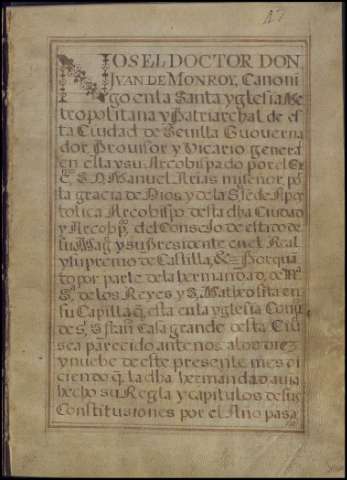 NOS EL DOCTOR DON
JVAN DE MONROY, Canoni
go en la Santa yglesia Me
tropolitana y Patriarchal de es
ta Ciudad de Sevilla Gouverna
dor Provisor y Vicario general
en ella y su Arcobispado por el Ex.
S. D. Manuel Arias mi señor por
la gracia de Dios y de la S.ta Sede Apos
tolica Arcobispo desta dha Ciudad
y Arcobp.º del Consejo de estado de
su Mag. y su Presidente en el Real
y supremo de Castilla, &.ª Por quan
to por parte de la hermandad, de Nr.ª
S.ª de los Reyes y S. Matheo sita en
su Capilla q. esta en la yglesia Conv.
de S. Fran. Casa grande desta Ciu
se a parecido ante nos a los diez
y nuebe de este presente mes di
ciendo q. la dha hermandad avia
hecho su Regla y capitulos de sus
Constituciones por el Año pasa